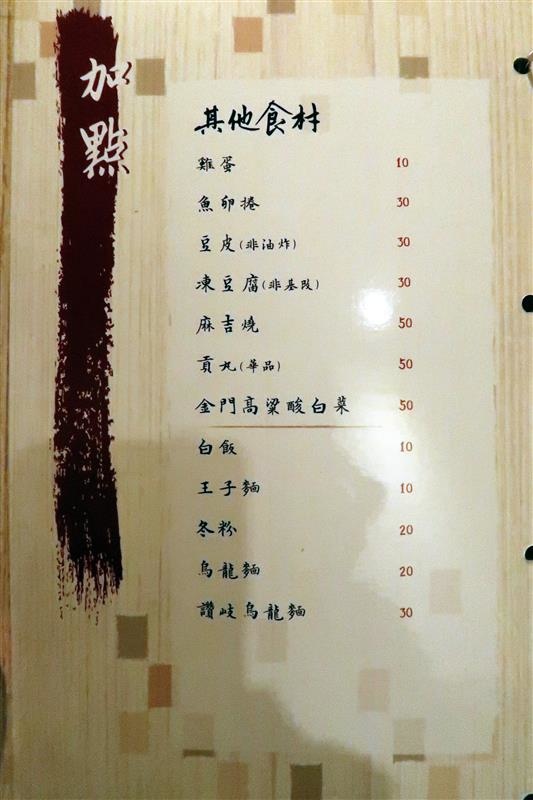 加點
其他食材
雞蛋 10
魚卵捲 30
豆皮(非油炸) 30
凍豆腐(非基改) 30
麻吉燒 50
貢丸(華品) 50
金門高粱酸白菜 50
白飯 10
王子麵 10
冬粉 20
烏龍麵 20
讚岐烏龍麵 30